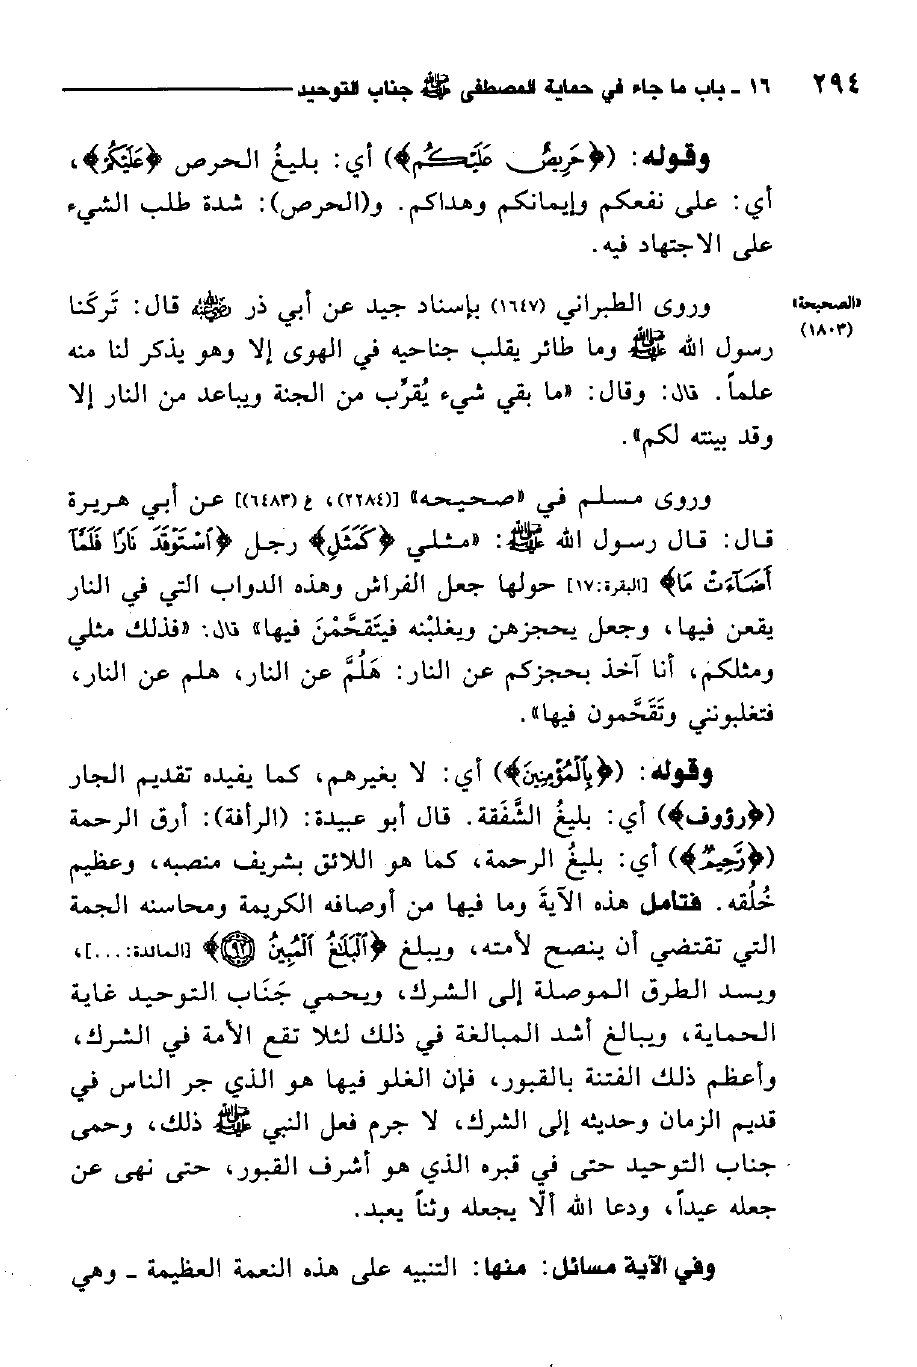 ٢٩٤ ١٦ ـ باب ما جاء في حماية المصطفى ﷺ جناب التوحيد
وقوله: (﴿حَرِيصٌ عَلَيْكُم﴾) أي: بليغُ الحرص ﴿عَلَيْكُمْ﴾،
أي: على نفعكم وإيمانكم وهداكم. و(الحرص): شدة طلب الشيء
على الاجتهاد فيه.
«الصحيحة»
(١٨٠٣)
وروى الطبراني (١٦٤٧) بإسناد جيد عن أبي ذر رضي الله عنه قال: تَركَنا
رسول الله ﷺ وما طائر يقلب جناحيه في الهوى إلا وهو يذكر لنا منه
علماً. قال: وقال: «ما بقي شيء يُقرِّب من الجنة ويباعد من النار إلا
وقد بينته لكم».
وروى مسلم في «صحيحه» [(٢٢٨٤)، خ (٦٤٨٣)] عن أبي هريرة
قال: قال رسول الله ﷺ: «مثلي ﴿كَمَثَلِ﴾ رجل ﴿ٱسْتَوْقَدَ نَارًا فَلَمَّآ
أَضَآءَتْ مَا﴾ [البقرة:١٧] حولها جعل الفراش وهذه الدواب التي في النار
يقعن فيها، وجعل يحجزهن ويغلبْنه فيتَقحَّمْنَ فيها» قال: «فذلك مثلي
ومثلكم، أنا آخذ بحجزكم عن النار: هَلُمَّ عن النار، هلم عن النار،
فتغلبونني وتَقَحَّمون فيها».
وقوله: (﴿بِٱلْمُؤْمِنِينَ﴾) أي: لا بغيرهم، كما يفيده تقديم الجار
(﴿رؤوف﴾) أي: بليغُ الشَّفَقة. قال أبو عبيدة: (الرأفة): أرق الرحمة
(﴿رَّحِيمٌ﴾) أي: بليغُ الرحمة، كما هو اللائق بشريف منصبه، وعظيم
خُلُقه. فتأمل هذه الآيةَ وما فيها من أوصافه الكريمة ومحاسنه الجمة
التي تقتضي أن ينصح لأمته، ويبلغ ﴿ٱلْبَلَٰغُ ٱلْمُبِينُ ٩٢﴾ [المائدة:...]،
ويسد الطرق الموصلة إلى الشرك، ويحمي جَنَاب التوحيد غاية
الحماية، ويبالغ أشد المبالغة في ذلك لئلا تقع الأمة في الشرك،
وأعظم ذلك الفتنة بالقبور، فإن الغلو فيها هو الذي جر الناس في
قديم الزمان وحديثه إلى الشرك، لا جرم فعل النبي ﷺ ذلك، وحمى
جناب التوحيد حتى في قبره الذي هو أشرف القبور، حتى نهى عن
جعله عيداً، ودعا الله ألّا يجعله وثناً يعبد.
وفي الآية مسائل: منها: التنبيه على هذه النعمة العظيمة ـ وهي